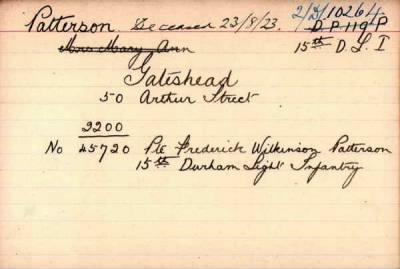 Patterson Deceased 23/8/23. 2/D/10264
D.P. 119 P
Mrs Mary Ann 15th D. L. I
Gateshead
50 Arthur Street
2200
No 45720 Pte Frederick Wilkinson Patterson
15th Durham Light Infantry